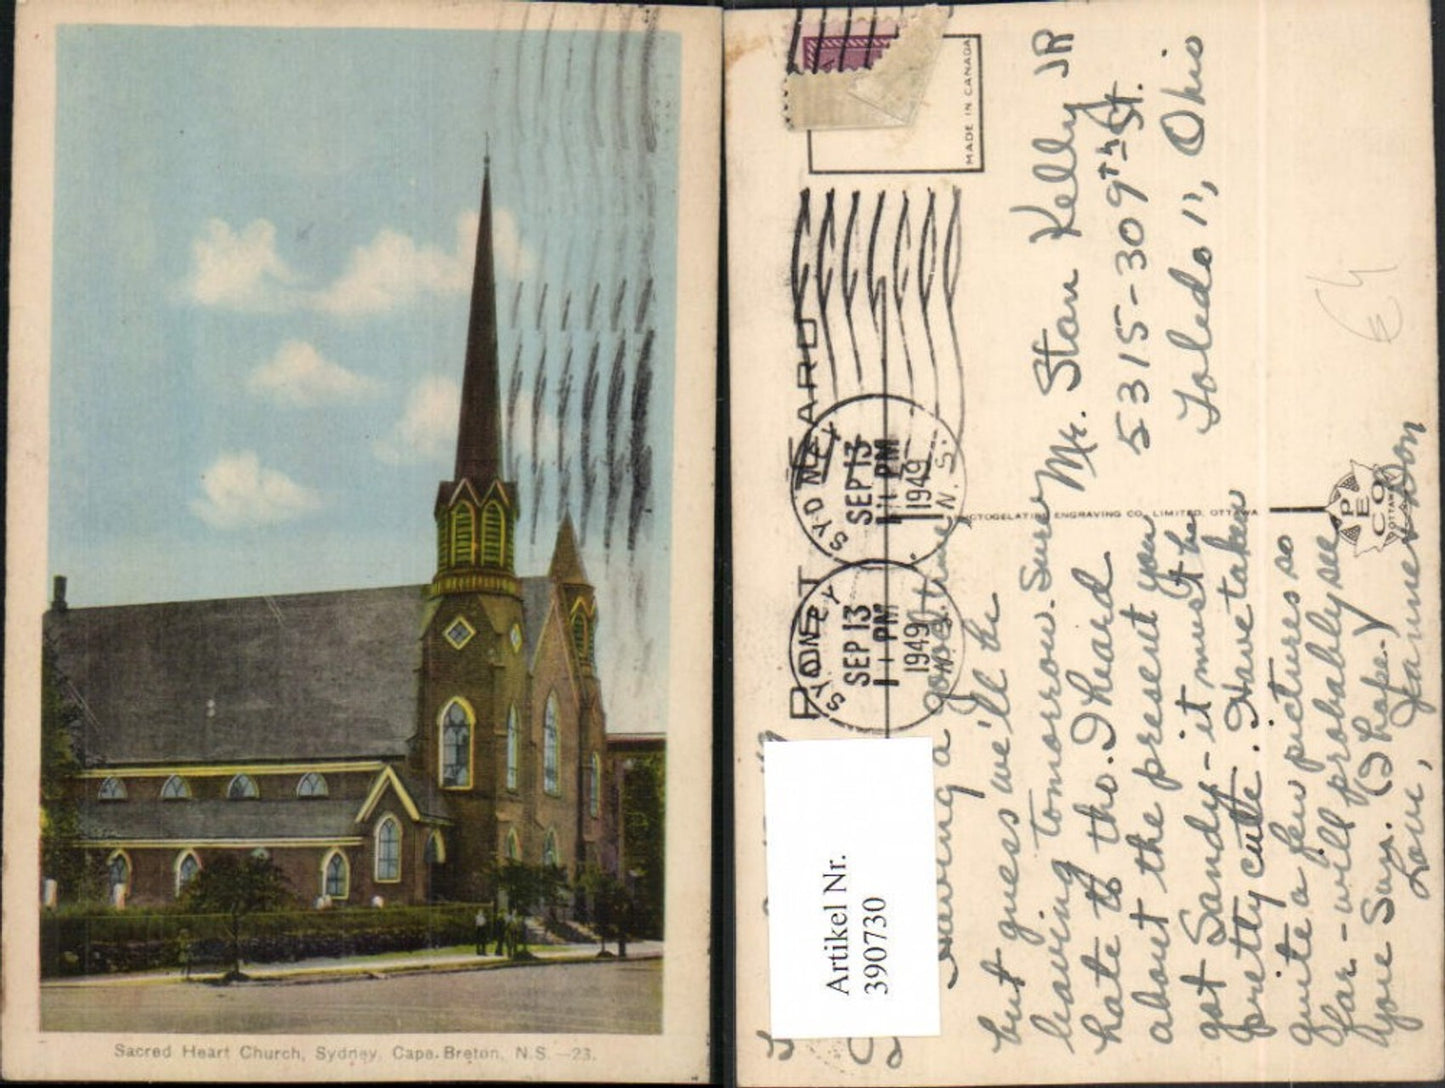 Sacred Heart Church, Sydney, Cape Breton, N.S.—23.
MADE IN CANADA
POST CARD
SYDNEY
SEP 13
11 PM
1949
N.S.
SYDNEY
SEP 13
11 PM
1949
N.S.
ENGRAVING CO. LIMITED, OTTAWA
PECO
OTTAWA
Artikel Nr.
390730
Having a good time
but guess we'll be
leaving tomorrow. Sure
hate to tho. I heard
about the present you
got Sandy - it must be
pretty cute. Have taken
quite a few pictures so
far - will probably see
you Sun. (I hope.)
Love,
Mr. Stan Kelly JR
5315-309th St.
Toledo 11, Ohio